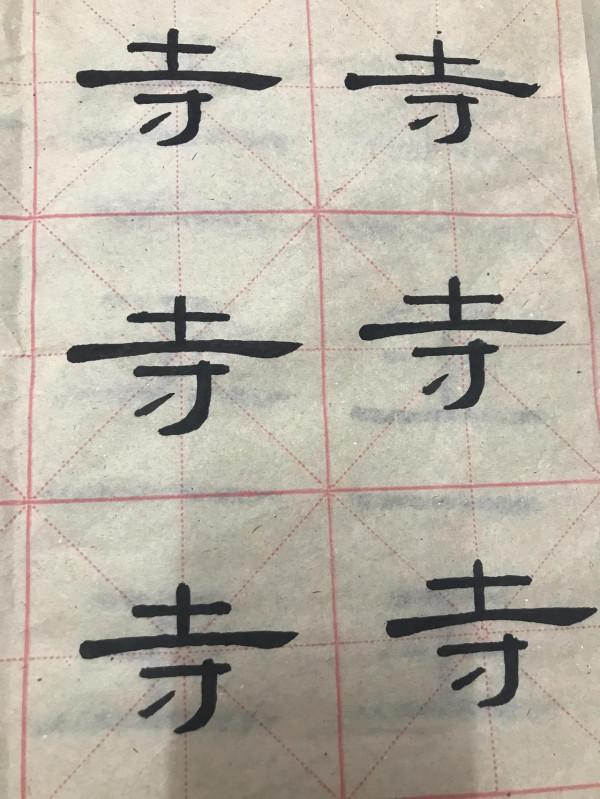 寺 寺
寺 寺
寺 寺